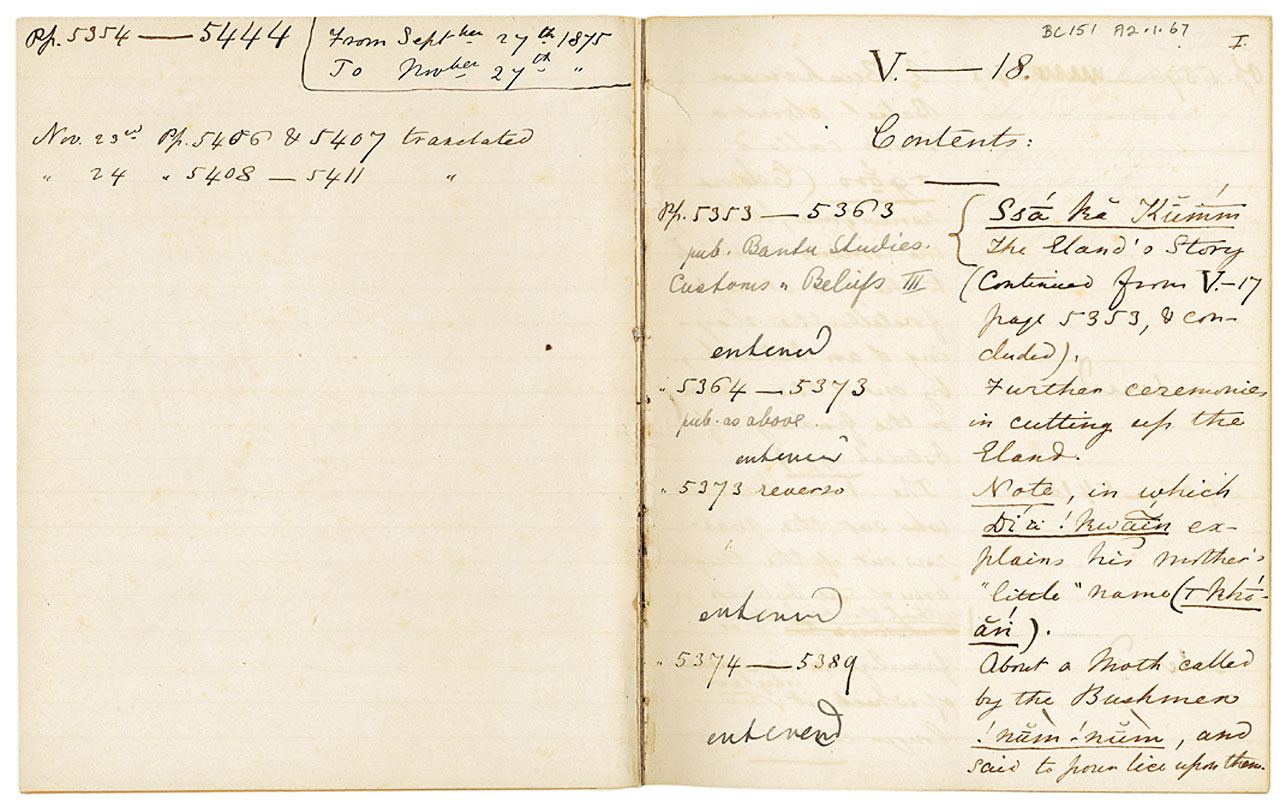 Pp. 5354 — 5444
From Septber 27th 1875
To Novber 27th "
Nov. 23rd Pp. 5406 & 5407 translated
" 24 " 5408 — 5411 "
BC151 A2.1.67
I.
V. — 18.
Contents:
Pp. 5353 — 5363
pub. Bantu Studies.
Customs " Beliefs III
entered
Ssá ka Kúmm
The Eland's Story
(Continued from V.–17
page 5353, & con-
cluded).
" 5364 — 5373
pub. as above.
entered
Further ceremonies
in cutting up the
Eland.
" 5373 reverso
entered
Note, in which
Díä ! kwãín ex-
plains his mother's
"little" name (
).
" 5374 — 5389
entered
About a Moth called
by the Bushmen
! nŭm ! nŭm, and
said to pour lice upon them.